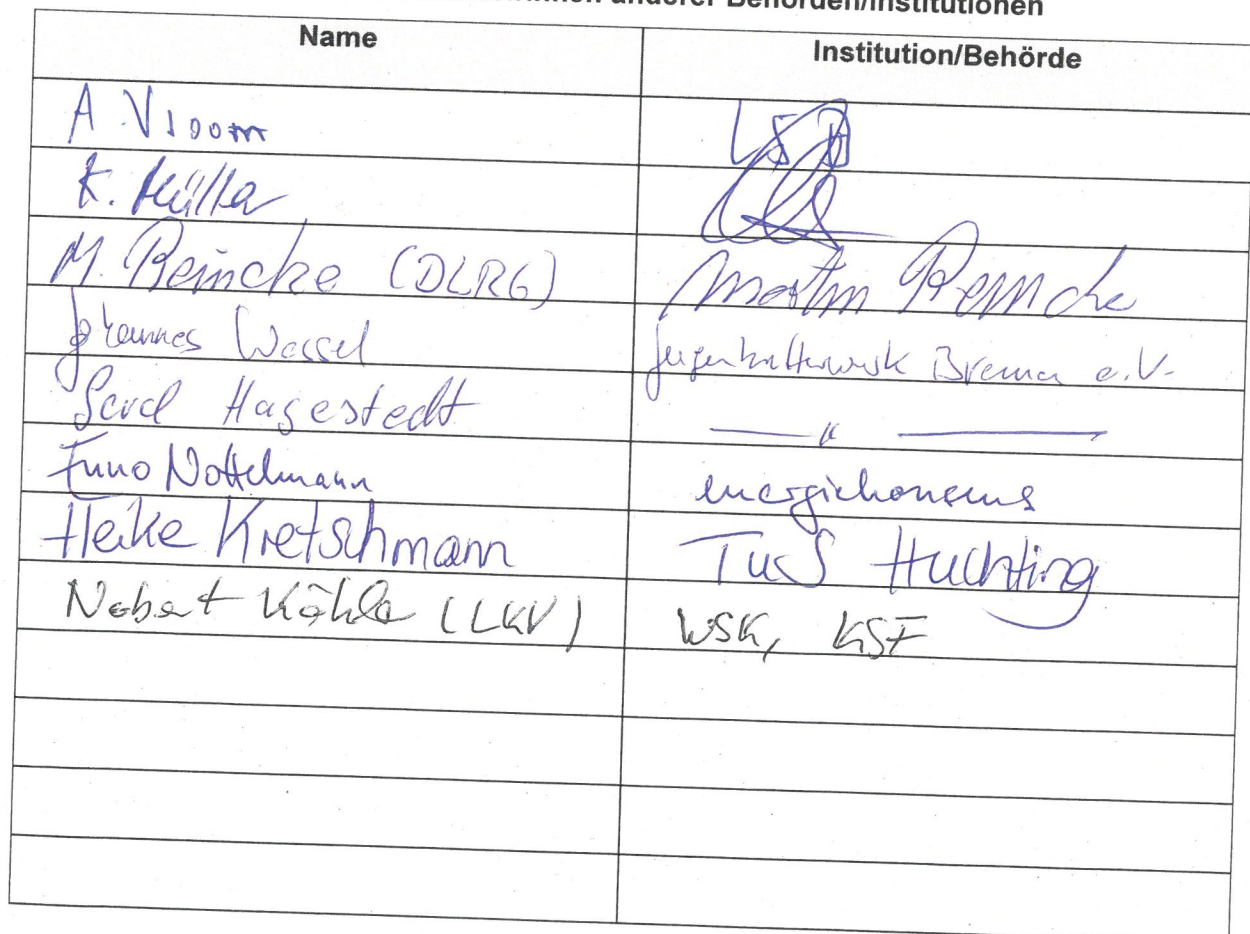 anderer Behörden/Institutionen
Name Institution/Behörde
A. Vroom LSB
K. Müller
M. Reincke (DLRG) Martin Reincke
Johannes Wessel Bremen e.V.
Gerd Hagestedt — " —
Enno Nottelmann energiekonsens
Heike Kretschmann TuS Huchting
Norbert Köhler (LKV) WSK, KSF